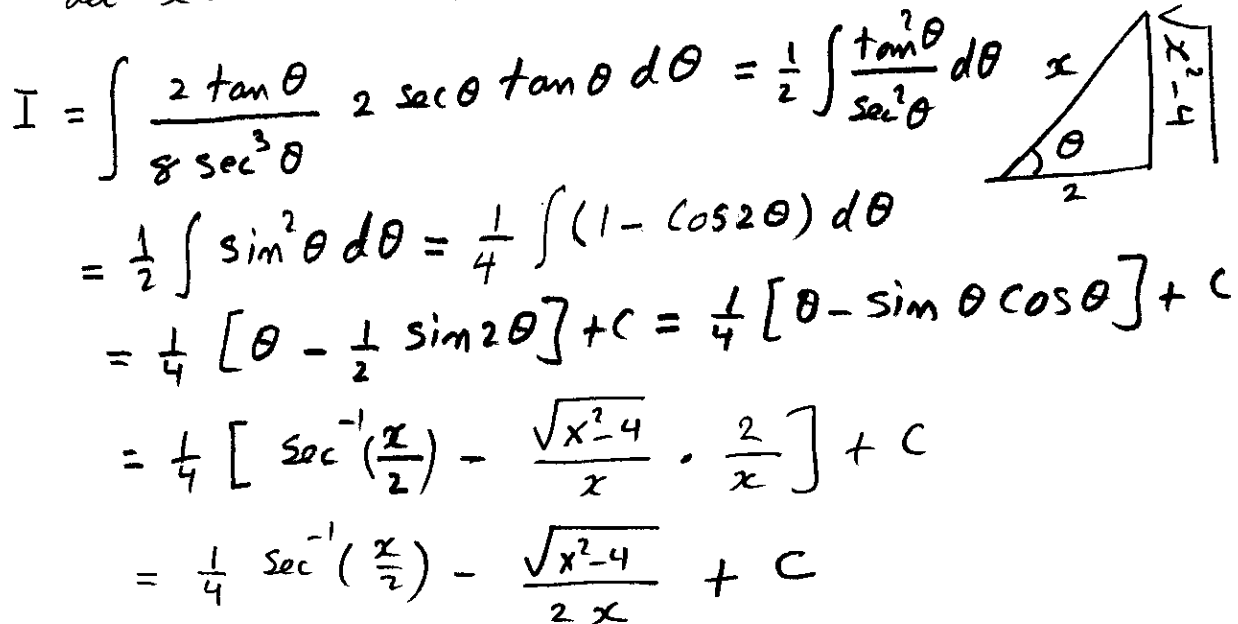 I = ∫ (2 tan θ)/(8 sec³ θ) 2 sec θ tan θ dθ = 1/2 ∫ (tan² θ)/(sec² θ) dθ
x
θ
2
√(x²-4)
= 1/2 ∫ sin² θ dθ = 1/4 ∫ (1 - cos 2θ) dθ
= 1/4 [θ - 1/2 sin 2θ] + C = 1/4 [θ - sin θ cos θ] + C
= 1/4 [sec⁻¹(x/2) - √(x²-4)/x · 2/x] + C
= 1/4 sec⁻¹(x/2) - √(x²-4)/(2x) + C